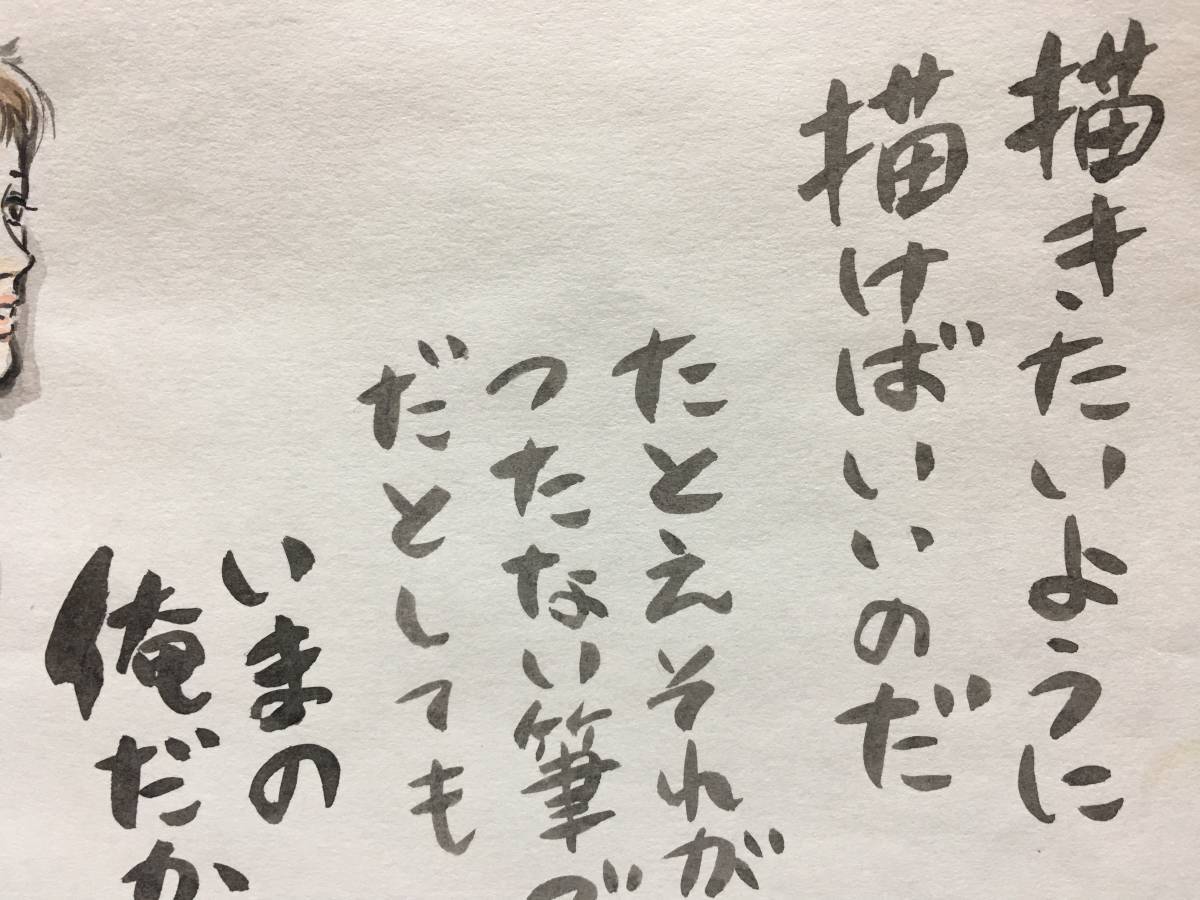 描きたいように
描けばいいのだ
たとえそれが
つたない筆づ
だとしても
いまの
俺だか